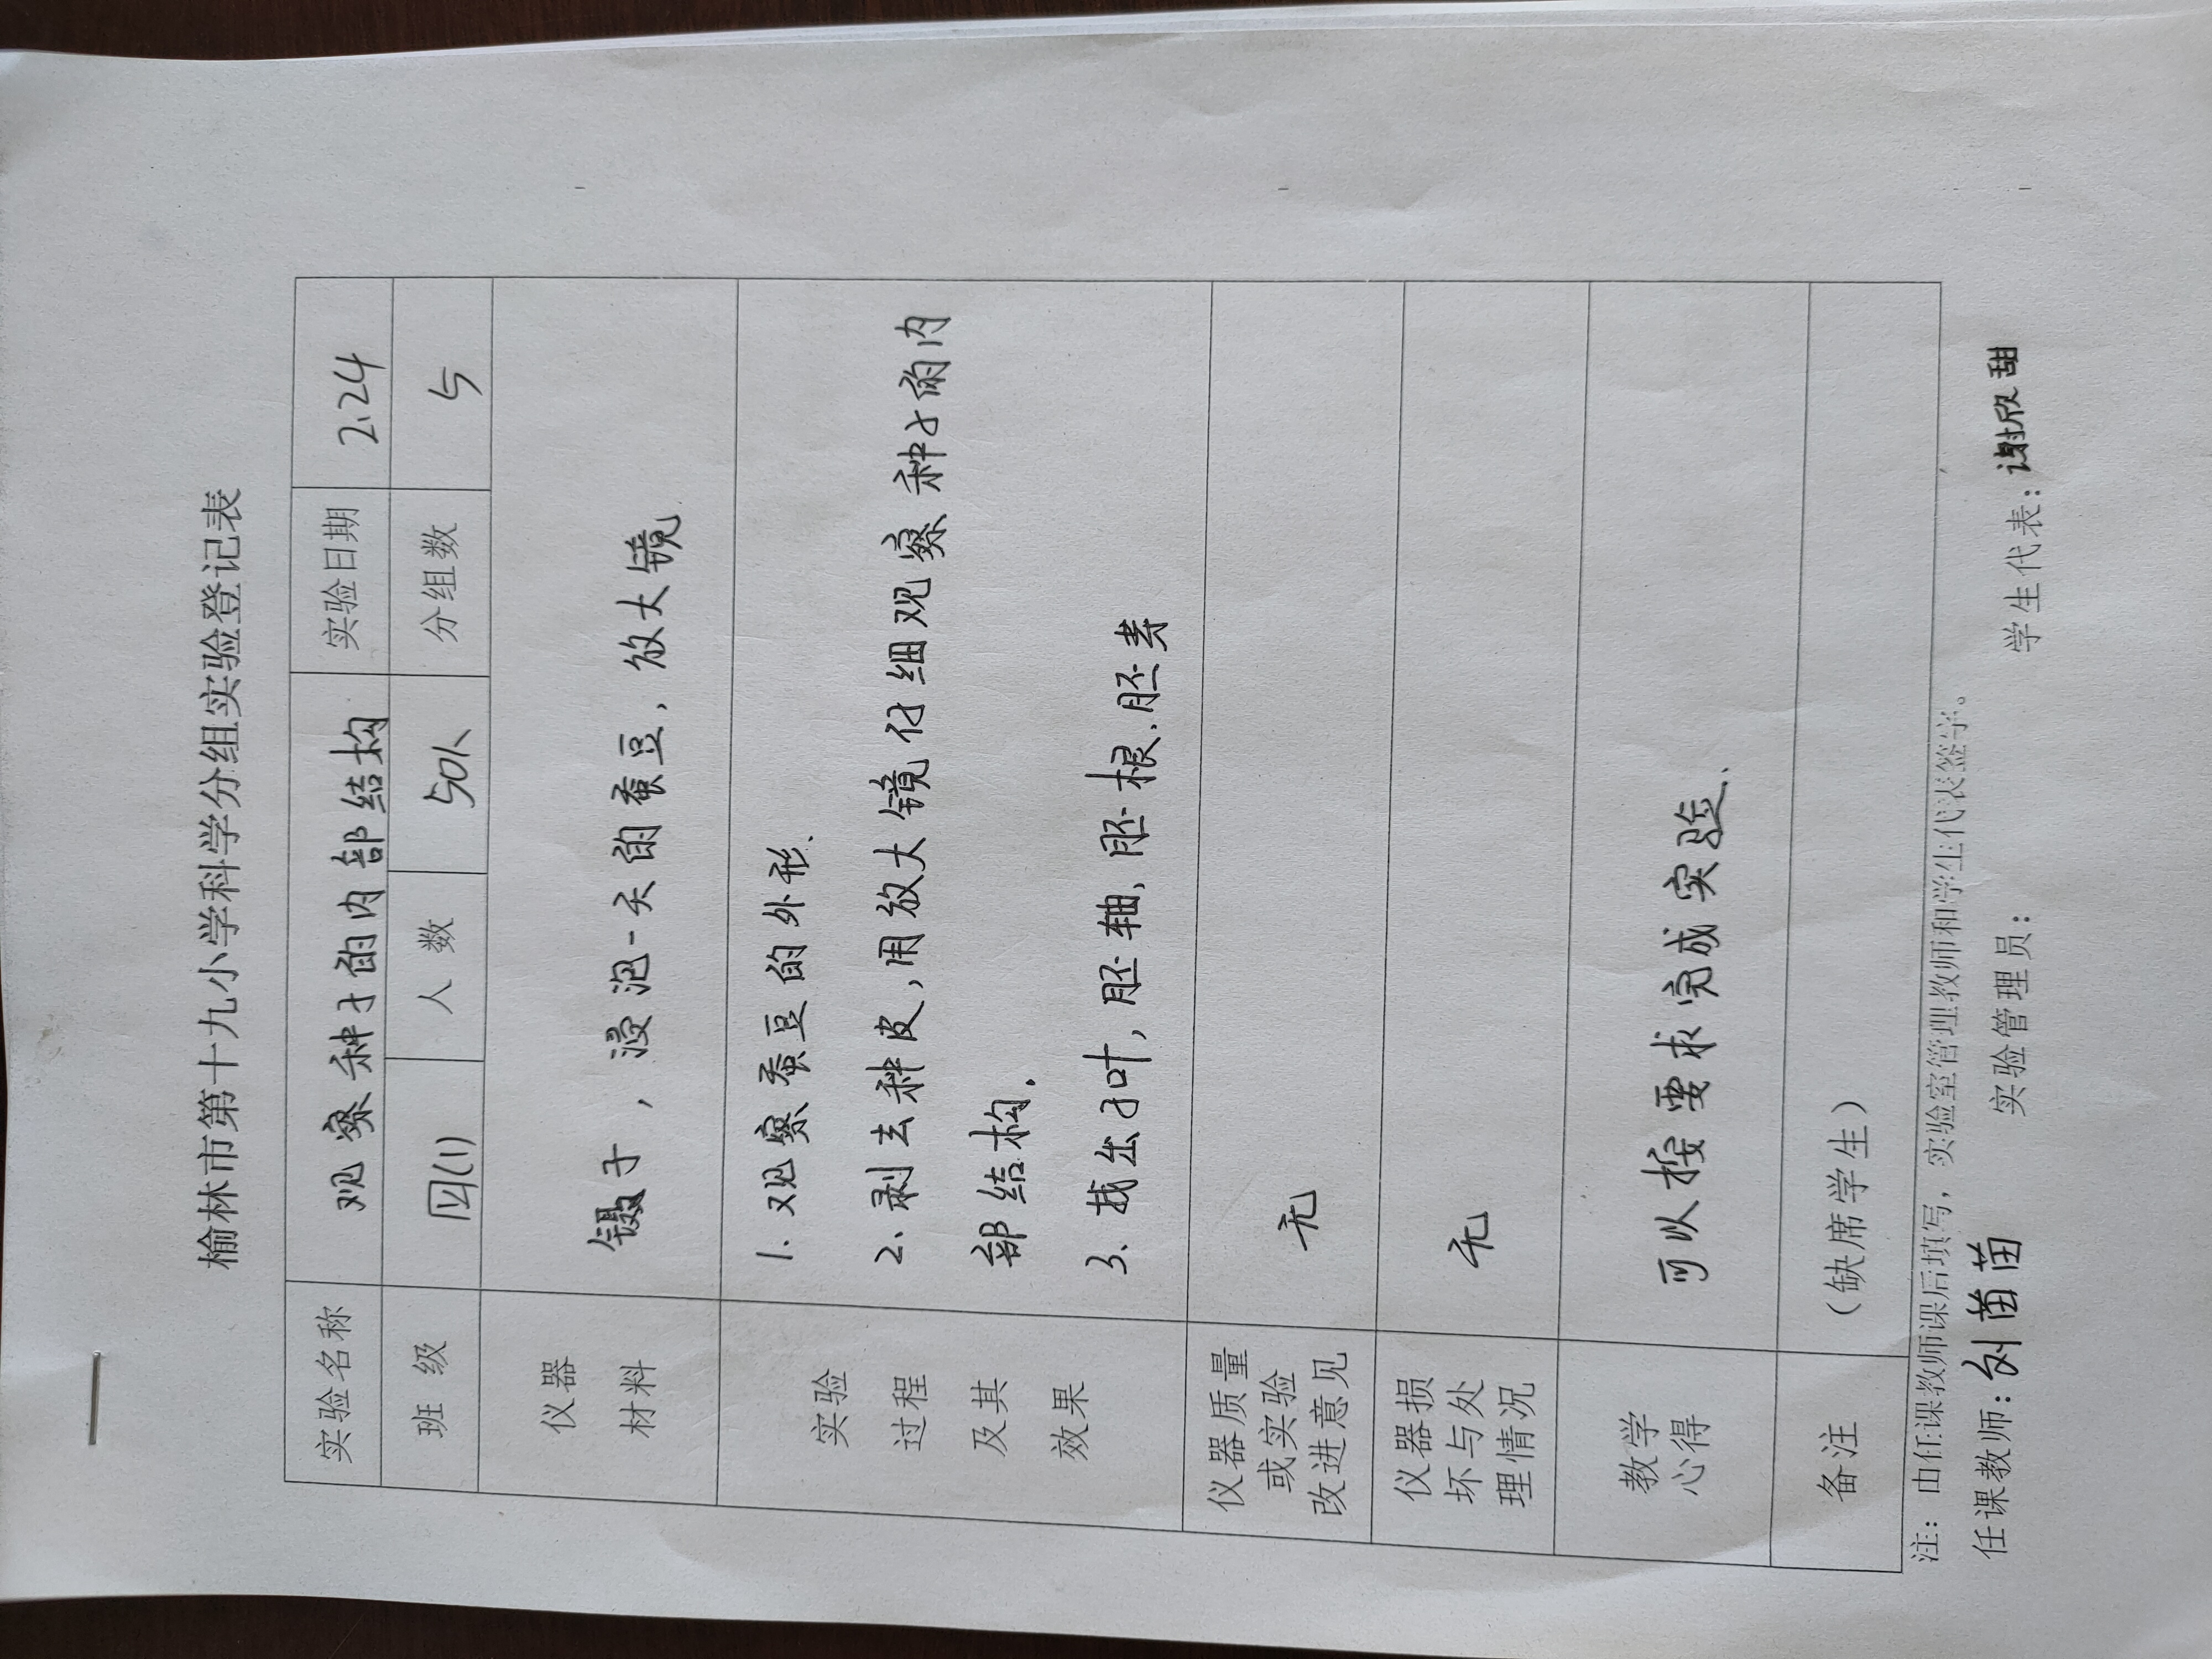 榆林市第十九小学科学分组实验登记表
实验名称 观察种子的内部结构 实验日期 2.24
班 级 四(1) 人 数 50人 分组数 5
仪器
材料
镊子，浸泡一天的蚕豆，放大镜
实验
过程
及其
效果
1. 观察蚕豆的外形.
2. 剥去种皮，用放大镜仔细观察种子的内
部结构.
3. 找出子叶，胚轴，胚根.胚芽
仪器质量
或实验
改进意见
无
仪器损
坏与处
理情况
无
教学
心得
可以按要求完成实验.
备注 （缺席学生）
注：由任课教师课后填写，实验室管理教师和学生代表签字。
任课教师：刘苗苗 实验管理员： 学生代表：谢欣甜